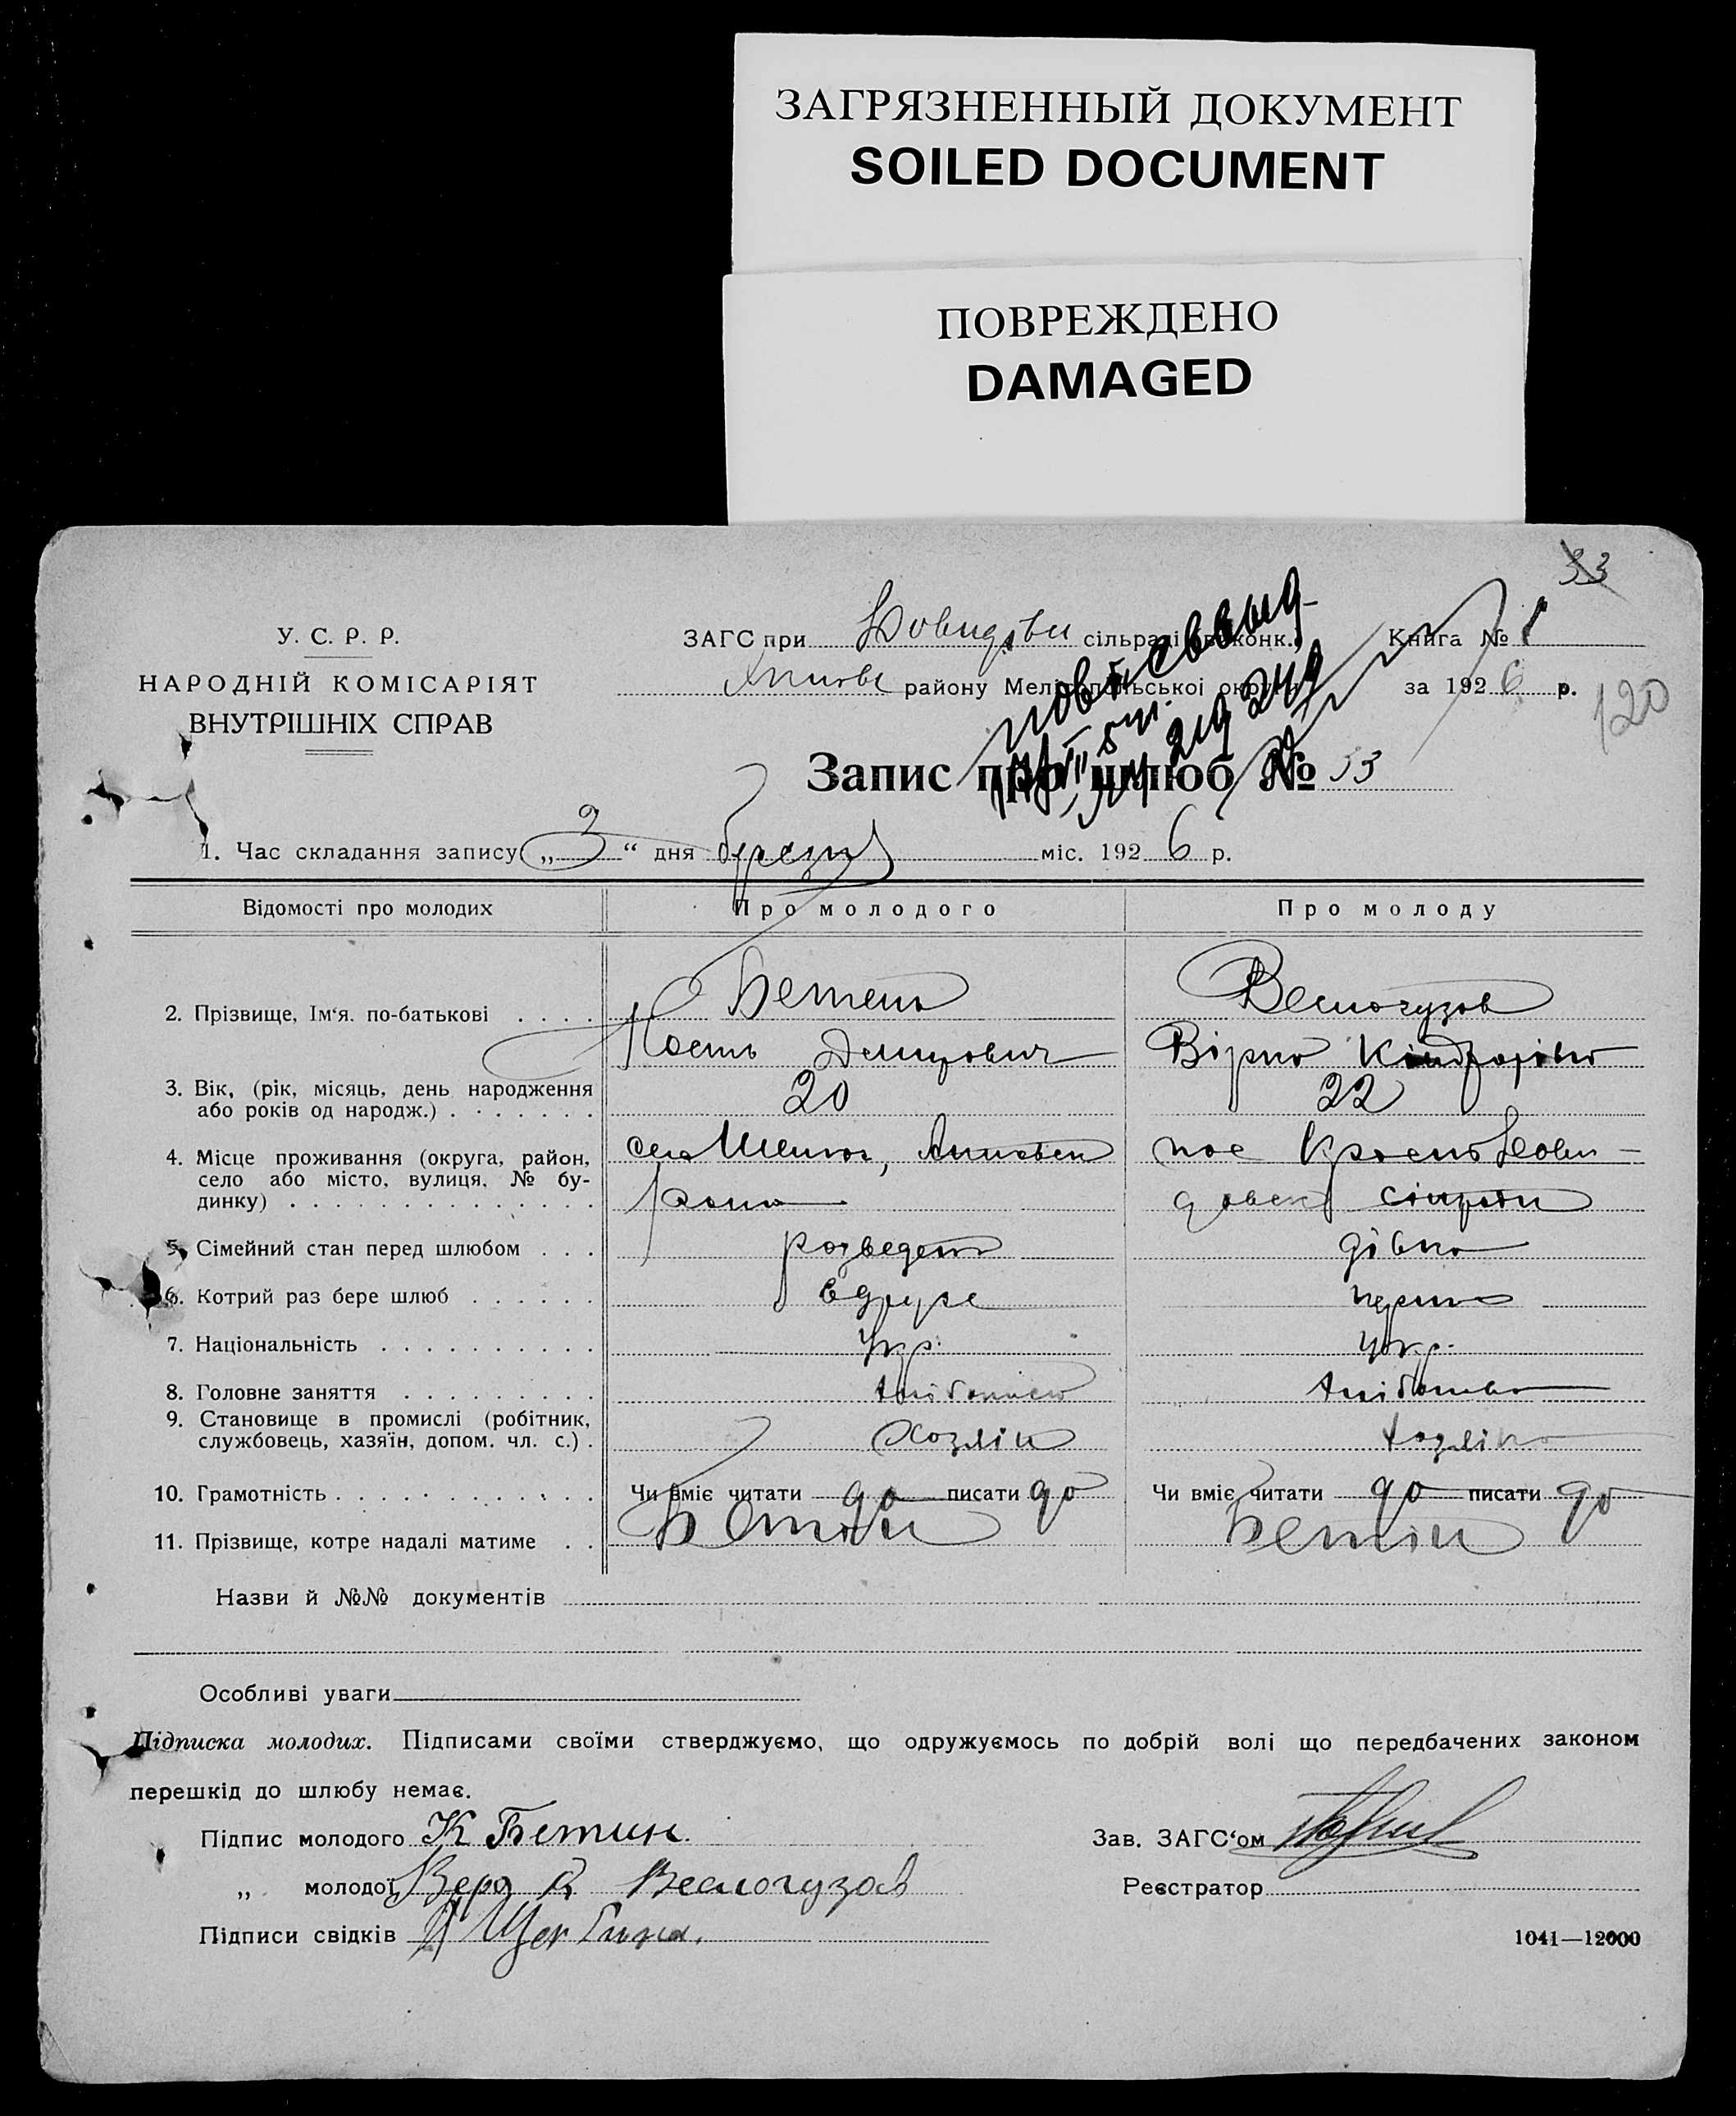 ЗАГРЯЗНЕННЫЙ ДОКУМЕНТ
SOILED DOCUMENT
ПОВРЕЖДЕНО
DAMAGED
33
У. С. Р. Р.
НАРОДНІЙ КОМІСАРІЯТ
ВНУТРІШНІХ СПРАВ
ЗАГС при сільраді Книга № 1
району Мелітопольської округи за 1926 р.
120
Запис про шлюб № 33
1. Час складання запису „3“ дня березня міс. 1926 р.
Відомості про молодих Про молодого Про молоду
2. Прізвище, Ім‘я. по-батькові . . . . Бетень Веслогузов
Кость Демидович Вірка Кіндратівна
3. Вік, (рік, місяць, день народження
або років од народж.) . . . . . . . 20 22
4. Місце проживання (округа, район, село Акимовськ пос
село або місто, вулиця, № бу-
динку) . . . . . . . . . . . . . . району сільради
5. Сімейний стан перед шлюбом . . . розведений дівка
6. Котрий раз бере шлюб . . . . . . вдруге перший
7. Національність . . . . . . . . . . Укр. Укр.
8. Головне заняття . . . . . . . . . хліборобство
9. Становище в промислі (робітник,
службовець, хазяїн, допом. чл. с.) . Хозяін
10. Грамотність . . . . . . . . . . . . Чи вміє читати до писати до Чи вміє читати до писати до
11. Прізвище, котре надалі матиме . . Бетін Бетін
Назви й №№ документів
Особливі уваги
Підписка молодих. Підписами своїми стверджуємо, що одружуємось по добрій волі що передбачених законом
перешкід до шлюбу немає.
Підпис молодого К Бетин. Зав. ЗАГС‘ом
„ молодої Вера К Веслогузов Реєстратор
Підписи свідків
1041—12000